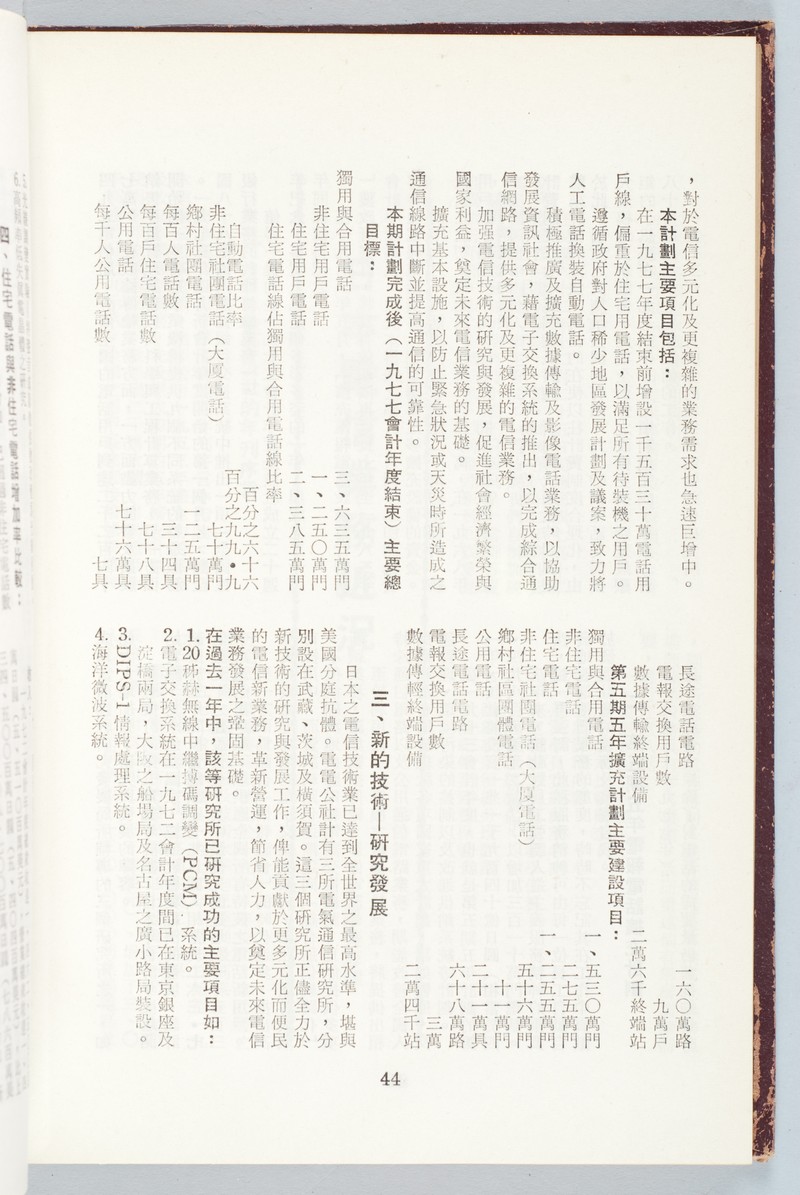 ，對於電信多元化及更複雜的業務需求也急速巨增中。
本計劃主要項目包括：
在一九七七年度結束前增設一千五百三十萬電話用
戶線，偏重於住宅用電話，以滿足所有待裝機之用戶。
遵循政府對人口稀少地區發展計劃及議案，致力將
人工電話換裝自動電話。
積極推廣及擴充數據傳輸及影像電話業務，以協助
發展資訊社會，藉電子交換系統的推出，以完成綜合通
信網路，提供多元化及更複雜的電信業務。
加强電信技術的研究與發展，促進社會經濟繁榮與
國家利益，奠定未來電信業務的基礎。
擴充基本設施，以防止緊急狀況或天災時所造成之
通信線路中斷並提高通信的可靠性。
本期計劃完成後（一九七七會計年度結束）主要總
目標：
獨用與合用電話　三、六三五萬門
非住宅用戶電話　一、二五〇萬門
住宅用戶電話　二、三八五萬門
住宅電話線佔獨用與合用電話線比率
百分之六十六
自動電話比率　百分之九九・九
非住宅社團電話（大廈電話）　七十萬門
鄉村社團電話　一二五萬門
每百人電話數　三十四具
每百戶住宅電話數　七十八具
公用電話　七十六萬具
每千人公用電話數　七具
長途電話電路　一六〇萬路
電報交換用戶數　九萬戶
數據傳輸終端設備　二萬六千終端站
第五期五年擴充計劃主要建設項目：
獨用與合用電話　一、五三〇萬門
非住宅電話　二七五萬門
住宅電話　一、二五五萬門
非住宅社團電話（大廈電話）　五十六萬門
鄉村社區團體電話　十一萬門
公用電話　二十一萬具
長途電話電路　六十八萬路
電報交換用戶數　三萬
數據傳輕終端設備　二萬四千站
三、新的技術—研究發展
日本之電信技術業已達到全世界之最高水準，堪與
美國分庭抗體。電電公社計有三所電氣通信研究所，分
別設在武藏、茨城及橫須賀。這三個研究所正儘全力於
新技術的研究與發展工作，俾能貢獻於更多元化而便民
的電信新業務，革新營運，節省人力，以奠定未來電信
業務發展之鞏固基礎。
在過去一年中，該等研究所已研究成功的主要項目如：
1. 20 姊赫無線中繼搏碼調變（PCM）系統。
2. 電子交換系統在一九七二會計年度間已在東京銀座及
淀橋兩局，大阪之船場局及名古屋之廣小路局裝設。
3. DIPS-1 情報處理系統。
4. 海洋微波系統。
44
四、住宅電話與非住宅電話增加率比較：